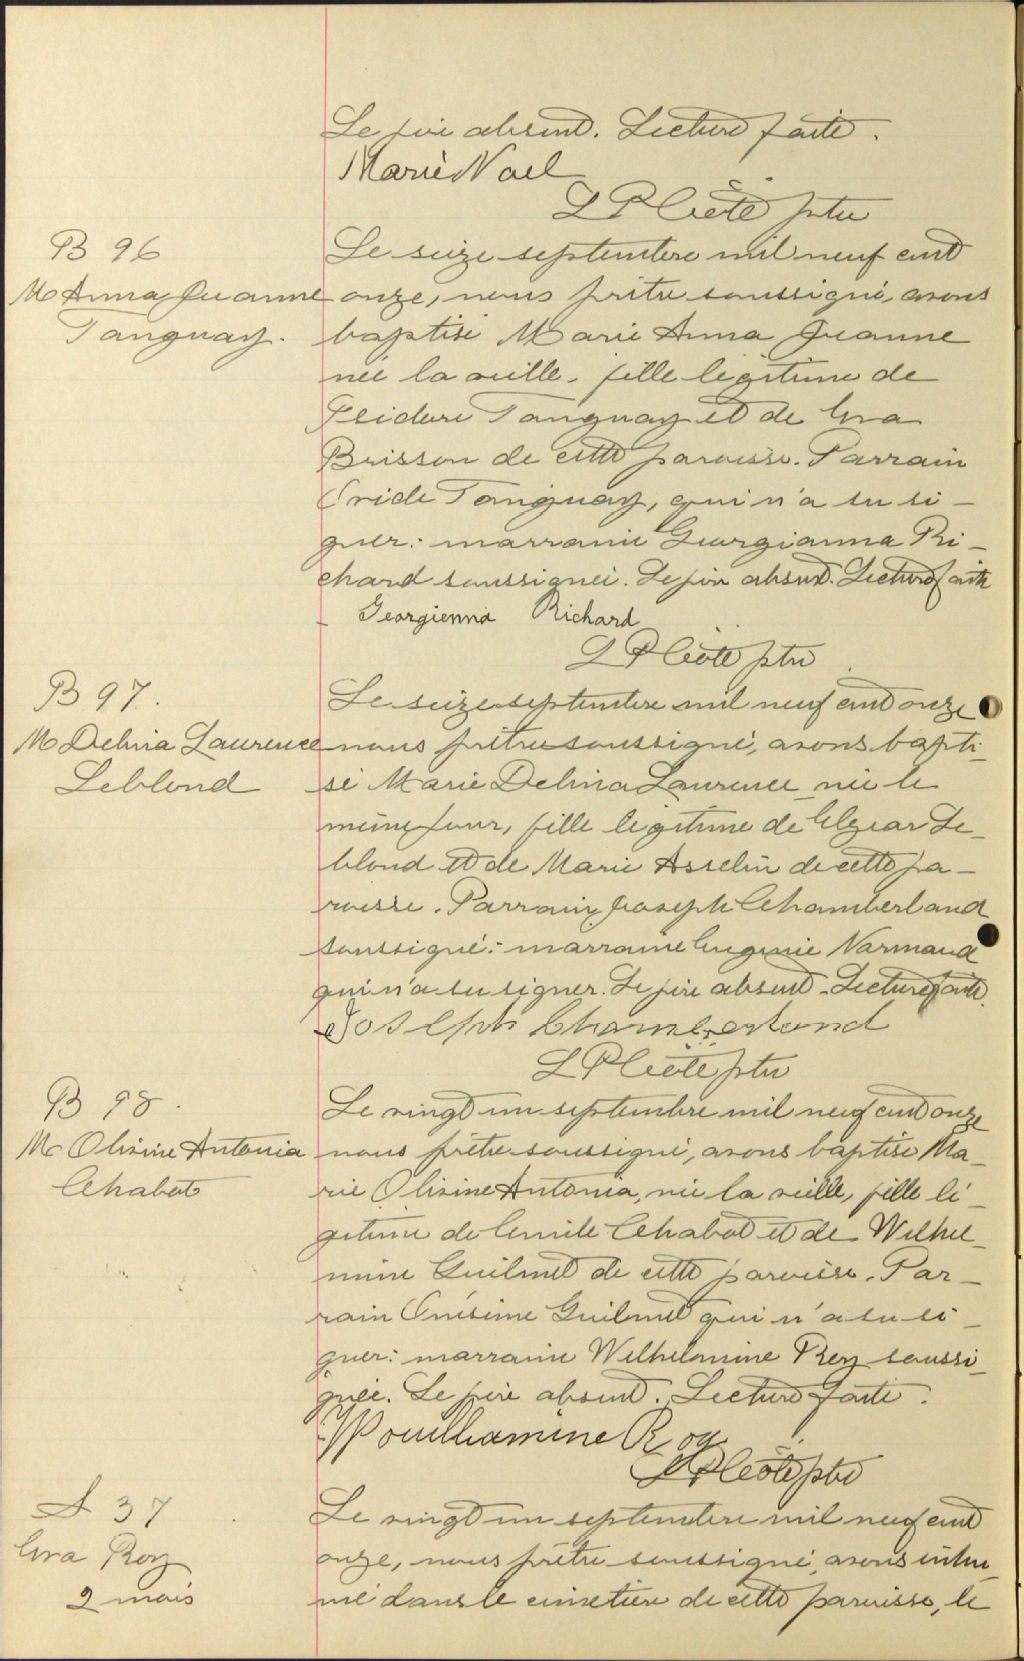 Le père absent. Lecture faite.
Marie Noel
L P Côté ptre
B 96
M Anna Jeanne
Tanguay.
Le seize septembre mil neuf cent
onze, nous prêtre soussigné, avons
baptisé Marie Anna Jeanne
née la veille, fille légitime de
Isidore Tanguay et de Eva
Brisson de cette paroisse. Parrain
Ovide Tanguay, qui n'a su si-
gner: marraine Georgianna Ri-
chard soussignée. Le père absent. Lecture faite
Georgienna Richard
L P Côté ptre
B 97.
M Delvia Laurence
Leblond
Le seize septembre mil neuf cent onze
nous prêtre soussigné, avons bapti-
sé Marie Delvina Laurence née le
même jour, fille légitime de Elzear Le-
blond et de Marie Asselin de cette pa-
roisse. Parrain Joseph Chamberland
soussigné: marraine Eugenie Normand
qui n'a su signer. Le père absent. Lecture faite.
Joseph Chamberland
L P Côté ptre
B 98.
M Olivine Antonia
Chabot
Le vingt un septembre mil neuf cent onze
nous prêtre soussigné, avons baptisé Ma-
rie Olivine Antonia, née la veille, fille lé-
gitime de Emile Chabot et de Wilhel-
mine Guilmet de cette paroisse. Par-
rain Onésime Guilmet qui n'a su si-
gner: marraine Wilhelmine Roy soussi-
gnée. Le père absent. Lecture faite.
Wouilhamine Roy
L P Côté ptre
S 37
Eva Roy
2 mois
Le vingt un septembre mil neuf cent
onze, nous prêtre soussigné, avons inhu-
mé dans le cimetière de cette paroisse, le